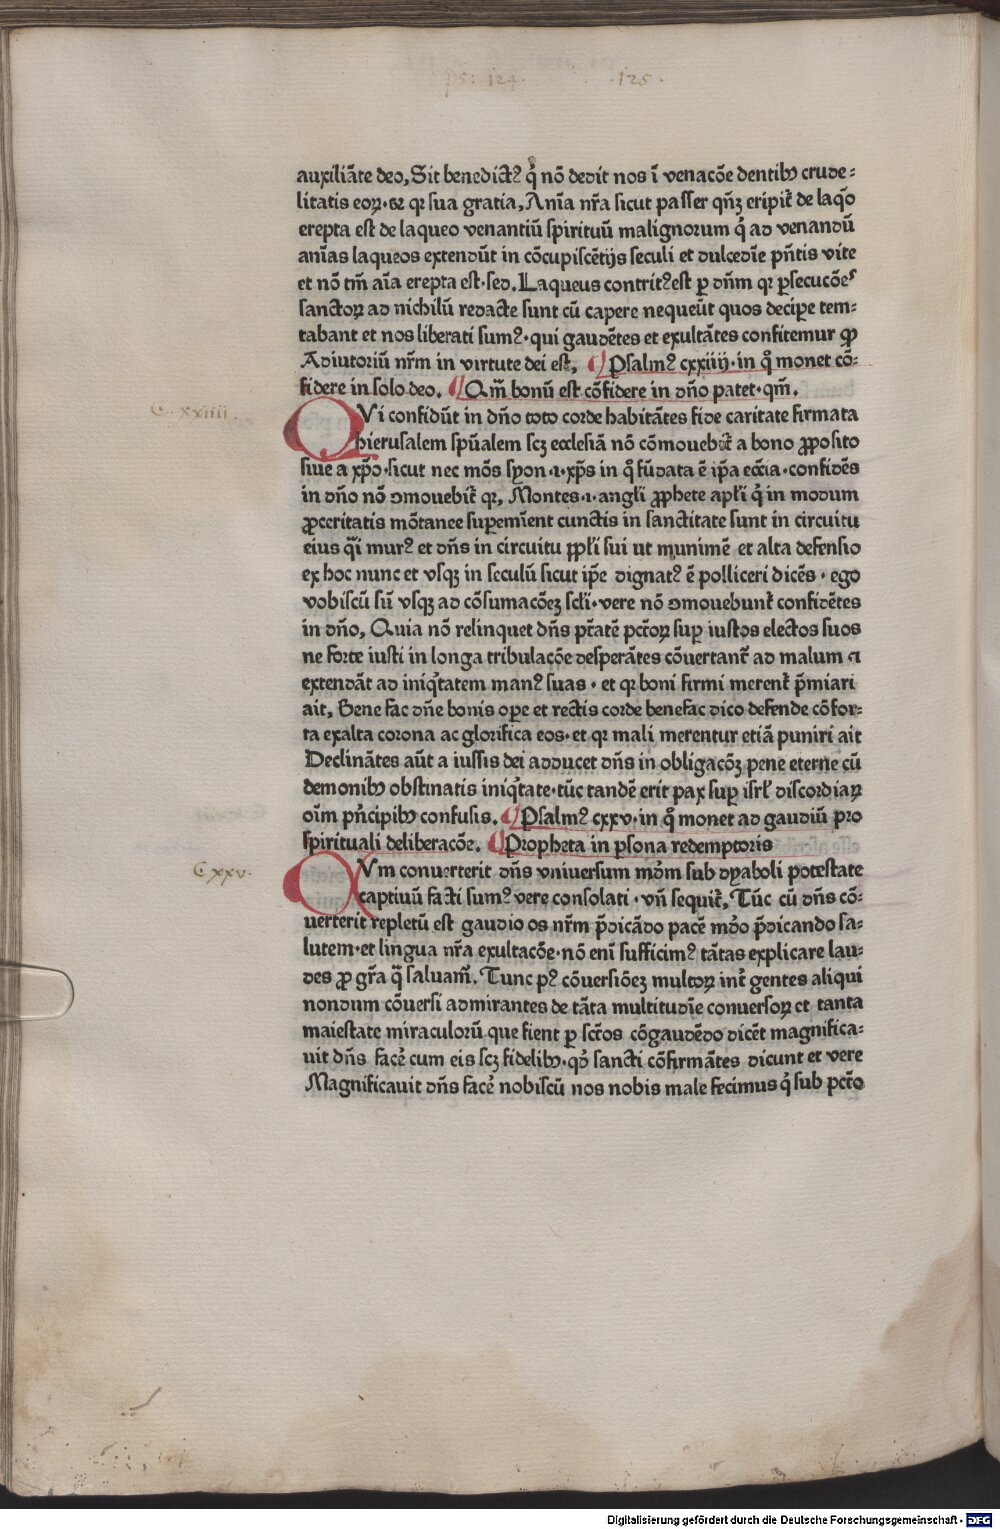 ps: 124. .125.
auxiliāte deo, Sit benedictꝰ q̇ nō dedit nos ī venacōe dentibꝫ crude⸗
litatis eoꝝ·⁊ qꝛ sua gratia, Anīa nr̄a sicut passer qn̄ꝫ eripit̄ de laq̄o
erepta est de laqueo venantiū spirituū malignorum q̇ ad venandū
anīas laqueos extendūt in cōcupiscētijs seculi et dulcedīe pn̄tis vite
et nō tm̄ aīa erepta est·sed, Laqueus contritꝰ est ꝑ dn̄m qꝛ ꝑsecucōes
sanctoꝝ ad nichilū redacte sunt cū capere nequeūt quos decipe tem⸗
tabant et nos liberati sumꝰ·qui gaudētes et exultātes confitemur ꝙ
Adiutoriū nr̄m in virtute dei est, ¶ Psalmꝰ cxxiiij·in q̊ monet cō⸗
fidere in solo deo, ¶ Qm̄ bonū est cōfidere in dn̄o patet·qm̄,
C·xxiiii.
QVi confidūt in dn̄o toto corde habitātes fide caritate firmata
hierusalem spūalem scꝫ ecclesiā nō cōmovebit̄ a bono ꝓposito
siue a xp̄o·sicut nec mōs syon·ı·xp̄s in q̊ fūdata ē ip̄a ecc̄ia·confidēs
in dn̄o nō ɔmouebit̄ qꝛ, Montes·ı·angl̄i ꝓphete apl̄i q̇ in modum
ꝓceritatis mōtanee supemīent cunctis in sanctitate sunt in circuitu
eius q̄i murꝰ et dn̄s in circuitu ppl̄i sui ut munimē et alta defensio
ex hoc nunc et vsqꝫ in seculū sicut ip̄e dignatꝰ ē polliceri dicēs · ego
vobiscū sū vsqꝫ ad cōsumacōeꝫ scl̄i·vere nō ɔmouebunt̄ confidētes
in dn̄o, Quia nō relinquet dn̄s ptātē pctōꝝ sup iustos electos suos
ne forte iusti in longa tribulacōe desperātes cōvertant̄ ad malum ⁊
extendāt ad iniq̇tatem manꝰ suas · et qꝛ boni firmi merent̄ p̄miari
ait, Bene fac dn̄e bonis ope et rectis corde benefac dico defende cōfor⸗
ta exalta corona ac glorifica eos·et qꝛ mali merentur etiā puniri ait
Declinātes aūt a iussis dei adducet dn̄s in obligacōꝫ pene eterne cū
demonibꝫ obstinatis iniq̇tate·tūc tandē erit pax sup isrl̄ discordiaꝝ
oīm pn̄cipibꝫ confusis, ¶ Psalmꝰ cxxv·in q̊ monet ad gaudiū pro
spirituali deliberacōe, ¶ Propheta in ꝑsona redemptoris
Cxxv.
CVm converterit dn̄s vniversum mōm sub dyaboli potestate
captivū facti sumꝰ vere consolati · vn̄ sequit̄, Tūc cū dn̄s cō⸗
uerterit repletū est gaudio os nr̄m p̄dicādo pacē mōo p̄dicando sa⸗
lutem·et lingua nr̄a exultacōe·nō enī sufficimꝰ tātas explicare lau⸗
des ꝓ gr̄a q̄ saluam̄, Tunc pꝰ cōversiōeꝫ multoꝝ int̄ gentes aliqui
nondum cōversi admirantes de tāta multitudīe conuersoꝝ et tanta
maiestate miraculorū que fient ꝑ sctōs cōgaudēdo dicēt magnifica⸗
uit dn̄s facē cum eis scꝫ fidelibꝫ·qđ sancti cōfirmātes dicunt et vere
Magnificauit dn̄s facē nobiscū nos nobis male fecimus q̇ sub pctō
Digitalisierung gefördert durch die Deutsche Forschungsgemeinschaft - DFG